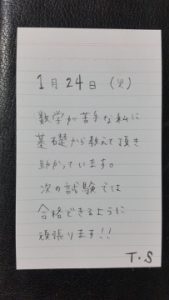 1月24日 (火)
数学が苦手な私に
基礎から教えて頂き
助かっています。
次の試験では
合格できるように
頑張ります!!
T・S